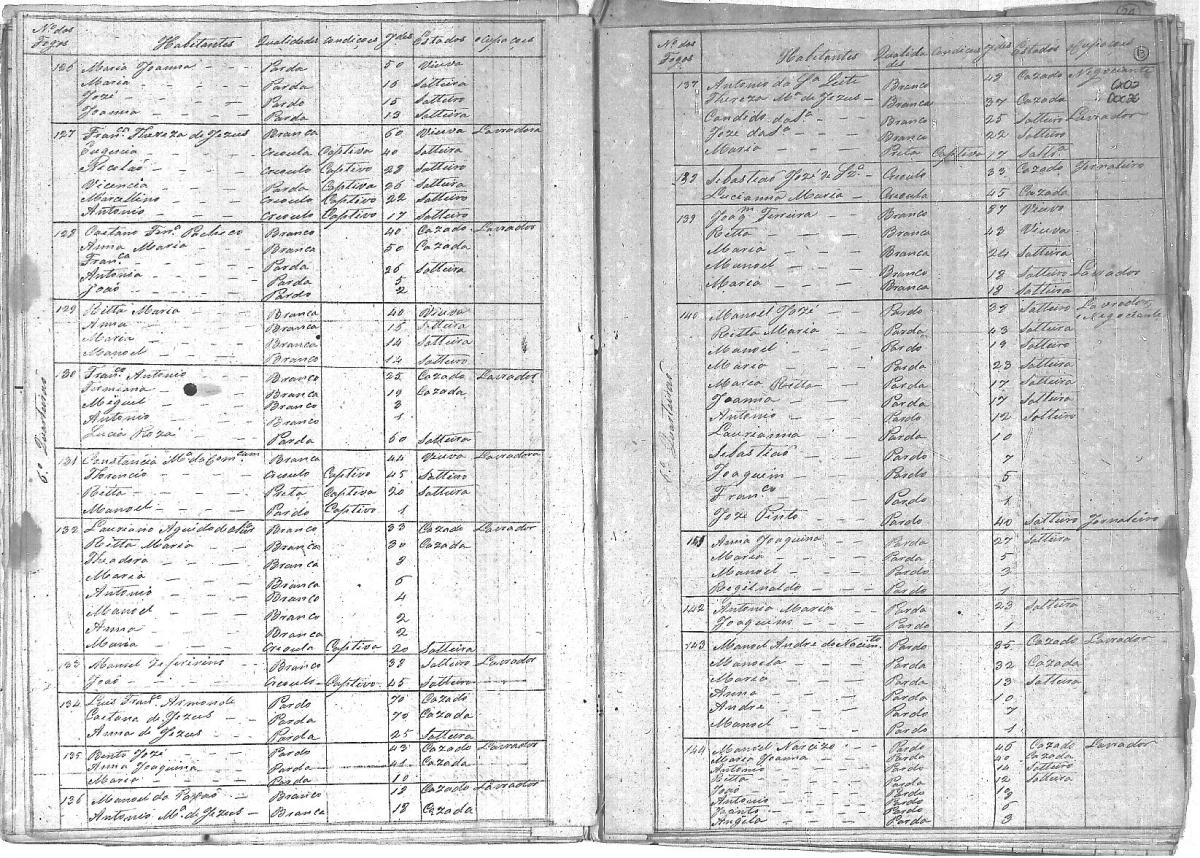 Nº dos Fogos Habitantes Qualidades Condições Ides Estados Ocupações
126 Maria Joanna Parda 50 Viuva
Maria Parda 16 Solteira
Jozé Pardo 15 Solteiro
Joanna Parda 13 Solteira
127 Franca Thereza de Jezus Branca 60 Viuva Lavradora
Eugenia Creoula Captiva 40 Solteira
Nicolaó Creoulo Captivo 28 Solteiro
Vicencia Parda Captiva 26 Solteira
Marcellino Creoulo Captivo 22 Solteiro
Antonio Creoulo Captivo 17 Solteiro
128 Caetano Ferrª Pacheco Branco 40 Cazado Lavrador
Anna Maria Branca 50 Cazada
Franca Parda 26 Solteira
Antonia Parda 5
João Pardo 2
129 Ritta Maria Branca 40 Viuva
Anna Branca 15 Solteira
Maria Branca 14 Solteira
Manoel Branco 12 Solteiro
130 Franco Antonio Branco 25 Cazado Lavrador
Firmiana Branca 19 Cazada
Miguel Branco 3
Antonio Branco 1
Lucia Roza Parda 60 Solteira
131 Constancia Mª da Branca 44 Viuva Lavradora
Florencio Creoulo Captivo 45 Solteiro
Ritta Preta Captiva 20 Solteira
Manoel Pardo Captivo 1
6º Quarteirão
132 Lauriano Branco 33 Cazado Lavrador
Ritta Maria Branca 30 Cazada
Theadora Branca 9
Maria Branca 6
Antonio Branco 4
Manoel Branco 2
Anna Branca 2
Maria Creoula Captiva 20 Solteira
133 Manoel Branco 38 Solteiro Lavrador
João Creoulo Captivo 45 Solteiro
134 Luis Franco Pardo 70 Cazado
Caetana de Jezus Parda 70 Cazada
Anna de Jezus Parda 25 Solteira
135 Bento Jozé Pardo 43 Cazado Lavrador
Anna Joaquina Parda 41 Cazada
Maria Parda 10
136 Manoel da Paxão Branco 18 Cazado Lavrador
Antonia Mª de Jezus Branca 18 Cazada
Nº dos Fogos Habitantes Qualidades Condições Ides Estados Ocupações
137 Antonio da Sª Leite Branco 42 Cazado Negociante
Thereza Mª de Jezus Branca 37 Cazada
Candido da Sª Branco 25 Solteiro Lavrador
Jozé da Sª Branco 22 Solteiro
Maria Preta Captiva 17 Soltrª
138 Sebastião Jozé Creoulo 33 Cazado Jornaleiro
Lucianna Maria Creoula 45 Cazada
139 Joaqm Ferreira Branco 87 Viuvo
Ritta Branca 43 Viuva
Maria Branca 24 Solteira
Manoel Branco 18 Solteiro Lavrador
Maria Branca 12 Solteira
140 Manoel Jozé Pardo 39 Solteiro Lavrador e Negociante
Ritta Maria Parda 43 Solteira
Manoel Pardo 19 Solteiro
Maria Parda 23 Solteira
Maria Ritta Parda 17 Solteira
Joanna Parda 17 Solteira
Antonio Pardo 12 Solteiro
Laurianna Parda 10
Sebastião Pardo 7
Joaquim Pardo 5
Franco Pardo 1
Jozé Pinto Pardo 40 Solteiro Jornaleiro
6º Quarteirão
141 Anna Joaquina Parda 27 Solteira
Maria Parda 5
Manoel Pardo 3
Reginaldo Pardo 1
142 Antonia Maria Parda 23 Solteira
Joaquim Pardo 1
143 Manoel Andre do Nacimto Pardo 35 Cazado Lavrador
Manoela Parda 32 Cazada
Maria Parda 13 Solteira
Anna Parda 10
Andre Pardo 7
Manoel Pardo 1
144 Manoel Narcizo Pardo 46 Cazado Lavrador
Maria Joanna Parda 40 Cazada
Antonio Pardo Solteiro
Ritta Parda 12 Solteira
João Pardo
Antonio Pardo
Pardo 6
Angela Parda 3